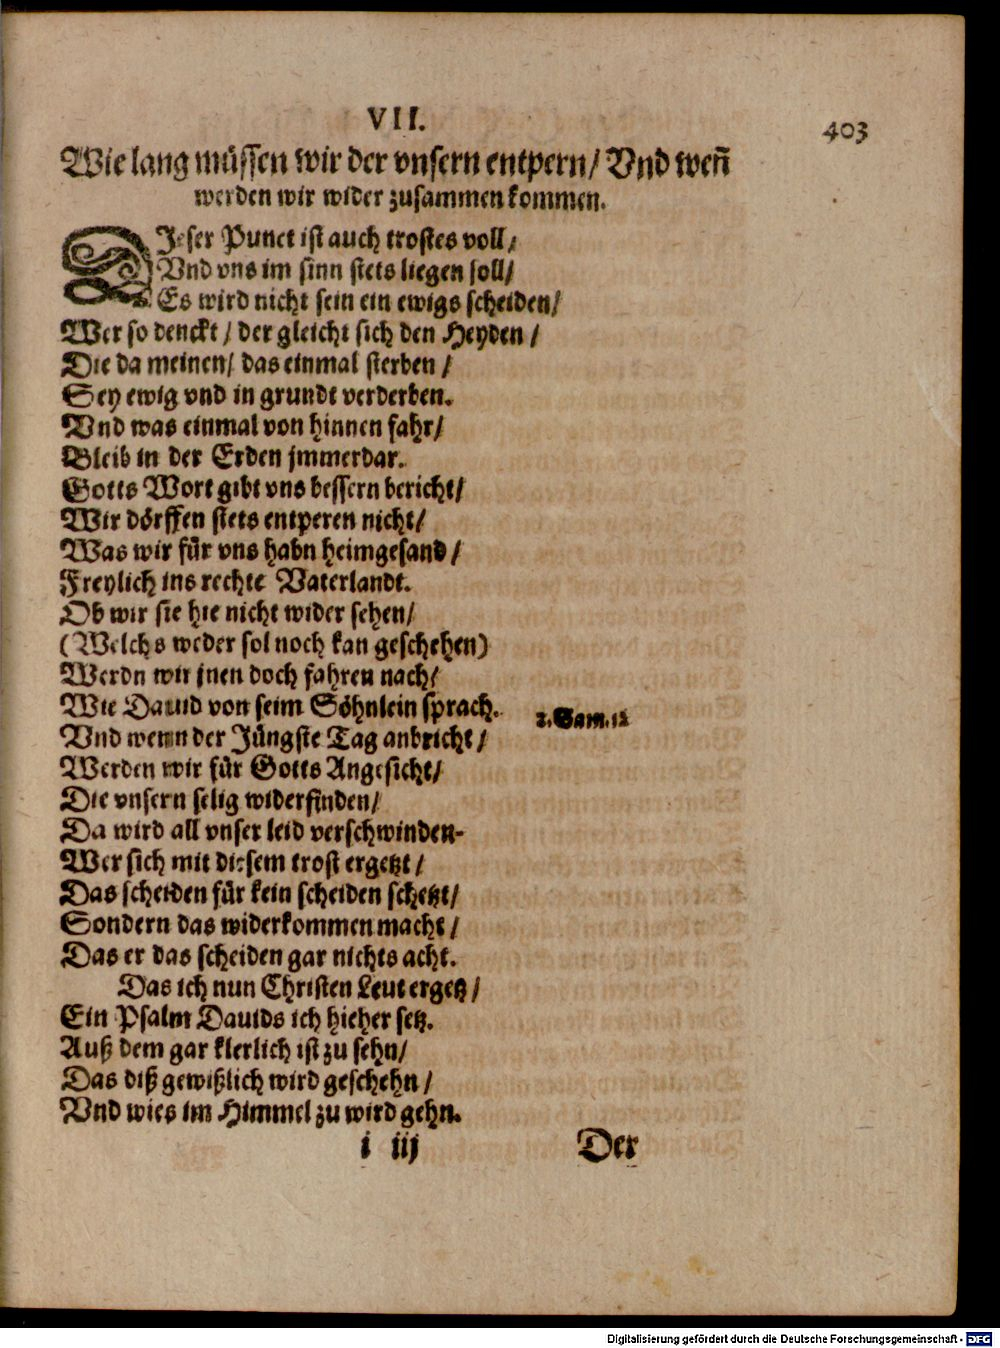 VII.
403
Wie lang müssen wir der vnsern entpern/ Vnd weñ
werden wir wider zusammen kommen.
DJeser Punct ist auch trostes voll/
Vnd vns im sinn stets liegen soll/
Es wird nicht sein ein ewigs scheiden/
Wer so denckt/ der gleicht sich den Heyden/
Die da meinen/ das einmal sterben/
Sey ewig vnd in grundt verderben.
Vnd was einmal von hinnen fahr/
Bleib in der Erden jmmerdar.
Gotts Wort gibt vns bessern bericht/
Wir dörffen stets entperen nicht/
Was wir für vns habn heimgesand/
Freylich ins rechte Vaterlandt.
Ob wir sie hie nicht wider sehen/
(Welchs weder sol noch kan geschehen)
Werdn wir jnen doch fahren nach/
Wie Dauid von seim Söhnlein sprach.
2. Sam. 12
Vnd wenn der Jüngste Tag anbricht/
Werden wir für Gotts Angesicht/
Die vnsern selig widerfinden/
Da wird all vnser leid verschwinden.
Wer sich mit diesem trost ergetzt/
Das scheiden für kein scheiden schetzt/
Sondern das widerkommen macht/
Das er das scheiden gar nichts acht.
Das ich nun Christen Leut ergetz/
Ein Psalm Dauids ich hieher setz.
Auß dem gar klerlich ist zu sehn/
Das diß gewißlich wird geschehn/
Vnd wies im Himmel zu wird gehn.
i iij Der
Digitalisierung gefördert durch die Deutsche Forschungsgemeinschaft - DFG